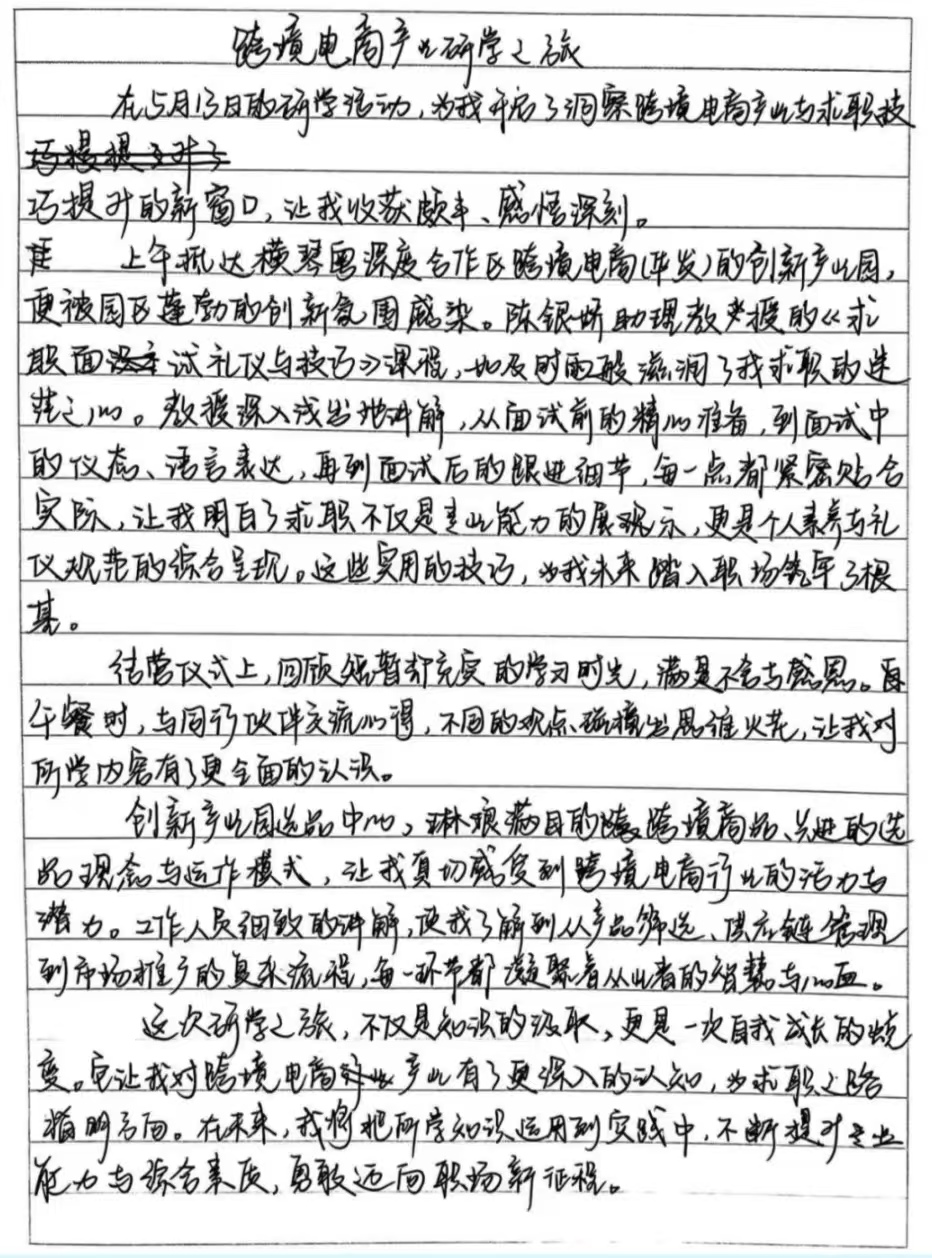 跨境电商产业研学之旅
在5月13日的研学活动,为我开启了洞察跨境电商产业与求职技
巧提升的新窗口,让我收获颇丰、感悟深刻。
上午抵达横琴粤深度合作区跨境电商(华发)的创新产业园,
便被园区蓬勃的创新氛围感染。陈银娇助理教授的《求
职面试礼仪与技巧》课程,如及时雨般滋润了我求职的迷
茫之心。教授深入浅出地讲解,从面试前的精心准备,到面试中
的仪态、语言表达,再到面试后的跟进细节,每一点都紧密贴合
实际,让我明白了求职不仅是专业能力的展现示,更是个人素养与礼
仪规范的综合呈现。这些实用的技巧,为我未来踏入职场筑牢了根
基。
结营仪式上,回顾短暂却充实的学习时光,满是不舍与感恩。自
午餐时,与同行伙伴交流心得,不同的观点碰撞出思维火花,让我对
所学内容有了更全面的认识。
创新产业园选品中心,琳琅满目的跨境商品、先进的选
品理念与运作模式,让我真切感受到跨境电商行业的活力与
潜力。工作人员细致的讲解,使我了解到从产品筛选、供应链管理
到市场推广的复杂流程,每一环节都凝聚着从业者的智慧与心血。
这次研学之旅,不仅是知识的汲取,更是一次自我成长的蜕
变。它让我对跨境电商产业有了更深入的认知,为求职之路
指明方向。在未来,我将把所学知识运用到实践中,不断提升专业
能力与综合素质,勇敢迈向职场新征程。